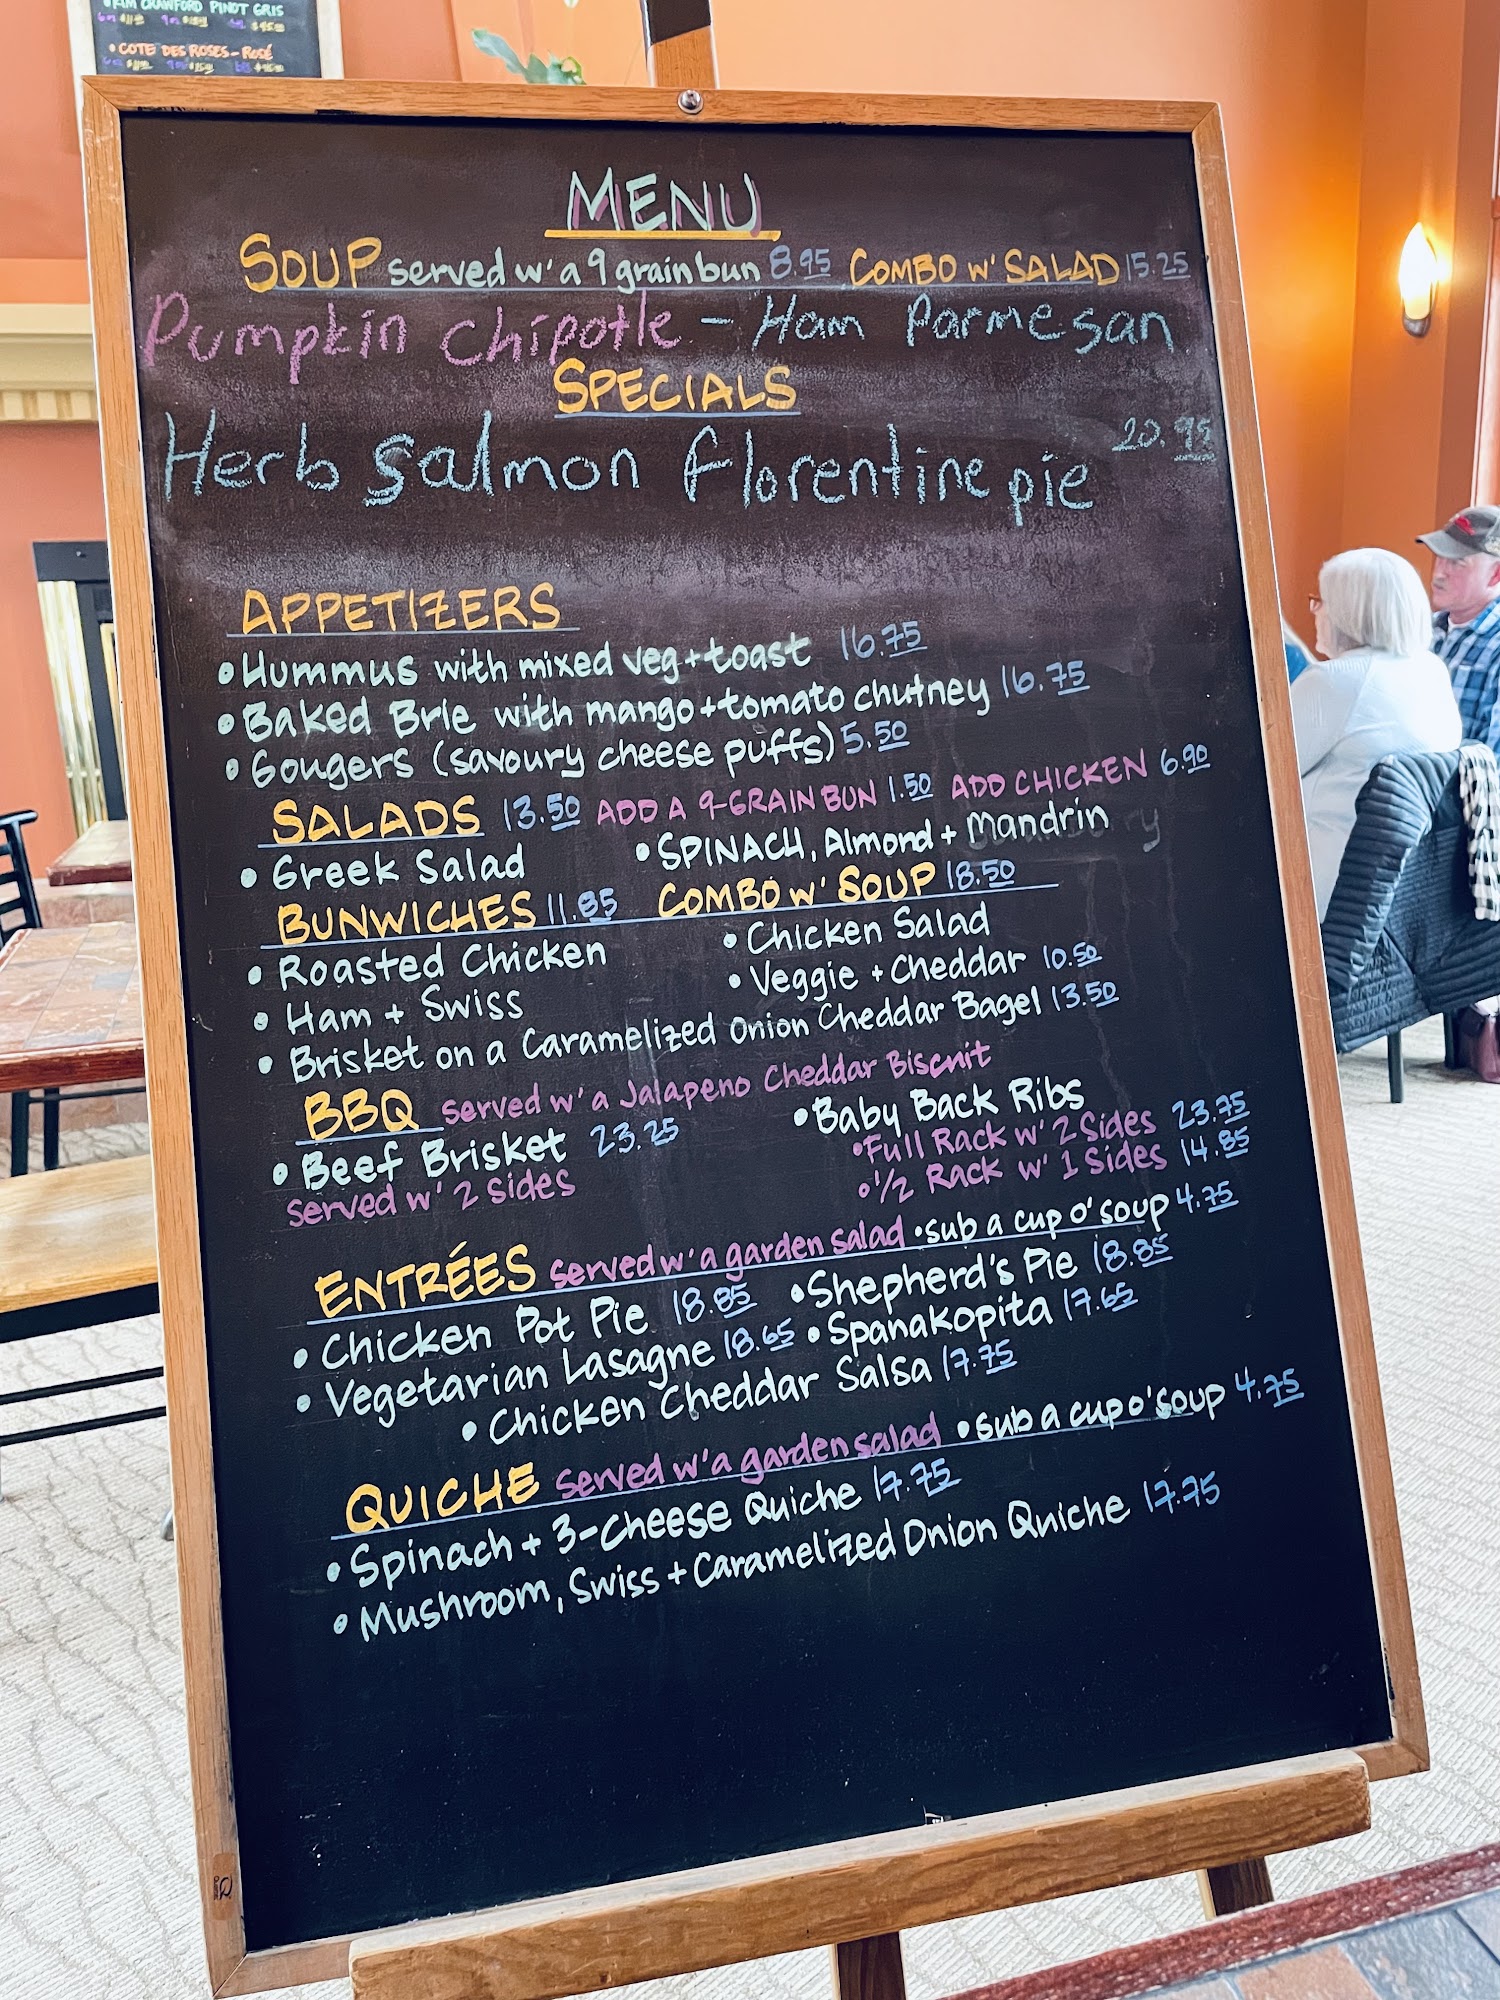 KIM CRAWFORD PINOT GRIS
• COTE DES ROSES - ROSÉ
MENU
SOUP served w' a 9 grain bun 8.95 COMBO W' SALAD 15.25
Pumpkin Chipotle - Ham Parmesan
SPECIALS
Herb Salmon florentine pie 20.95
APPETIZERS
• Hummus with mixed veg + toast 16.75
• Baked Brie with mango + tomato chutney 16.75
• Gougers (savoury cheese puffs) 5.50
SALADS 13.50 ADD A 9-GRAIN BUN 1.50 ADD CHICKEN 6.90
• Greek Salad • SPINACH, Almond + Mandrin
BUNWICHES 11.85 COMBO W' SOUP 18.50
• Roasted Chicken • Chicken Salad
• Ham + Swiss • Veggie + Cheddar 10.50
• Brisket on a Caramelized Onion Cheddar Bagel 13.50
BBQ served w' a Jalapeno Cheddar Biscuit
• Beef Brisket 23.25 • Baby Back Ribs
served w' 2 sides • Full Rack w' 2 Sides 23.75
• 1/2 Rack w' 1 Sides 14.85
ENTRÉES served w' a garden salad • sub a cup o' soup 4.75
• Chicken Pot Pie 18.85 • Shepherd's Pie 18.85
• Vegetarian Lasagne 18.65 • Spanakopita 17.65
• Chicken Cheddar Salsa 17.75
QUICHE served w' a garden salad • sub a cup o' soup 4.75
• Spinach + 3-Cheese Quiche 17.75
• Mushroom, Swiss + Caramelized Onion Quiche 17.75